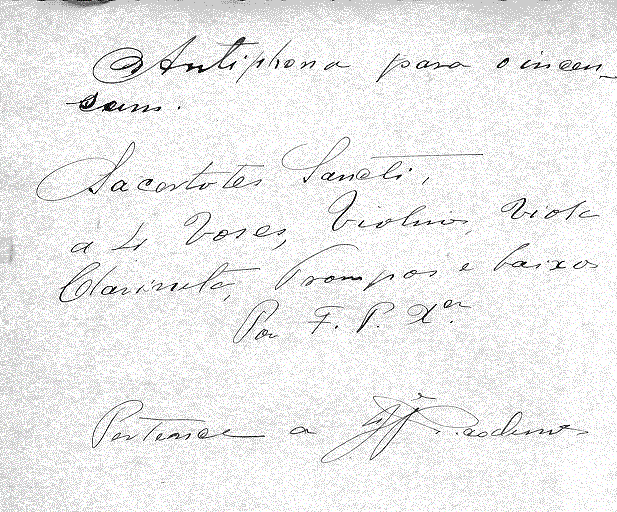 Antiphona para o incen-
sam.
Sacertotes Sancti,
a 4 Vozes, Violino, Viola
Clarineta, Trompas e baixos
Por F. P. Xer.
Pertence a